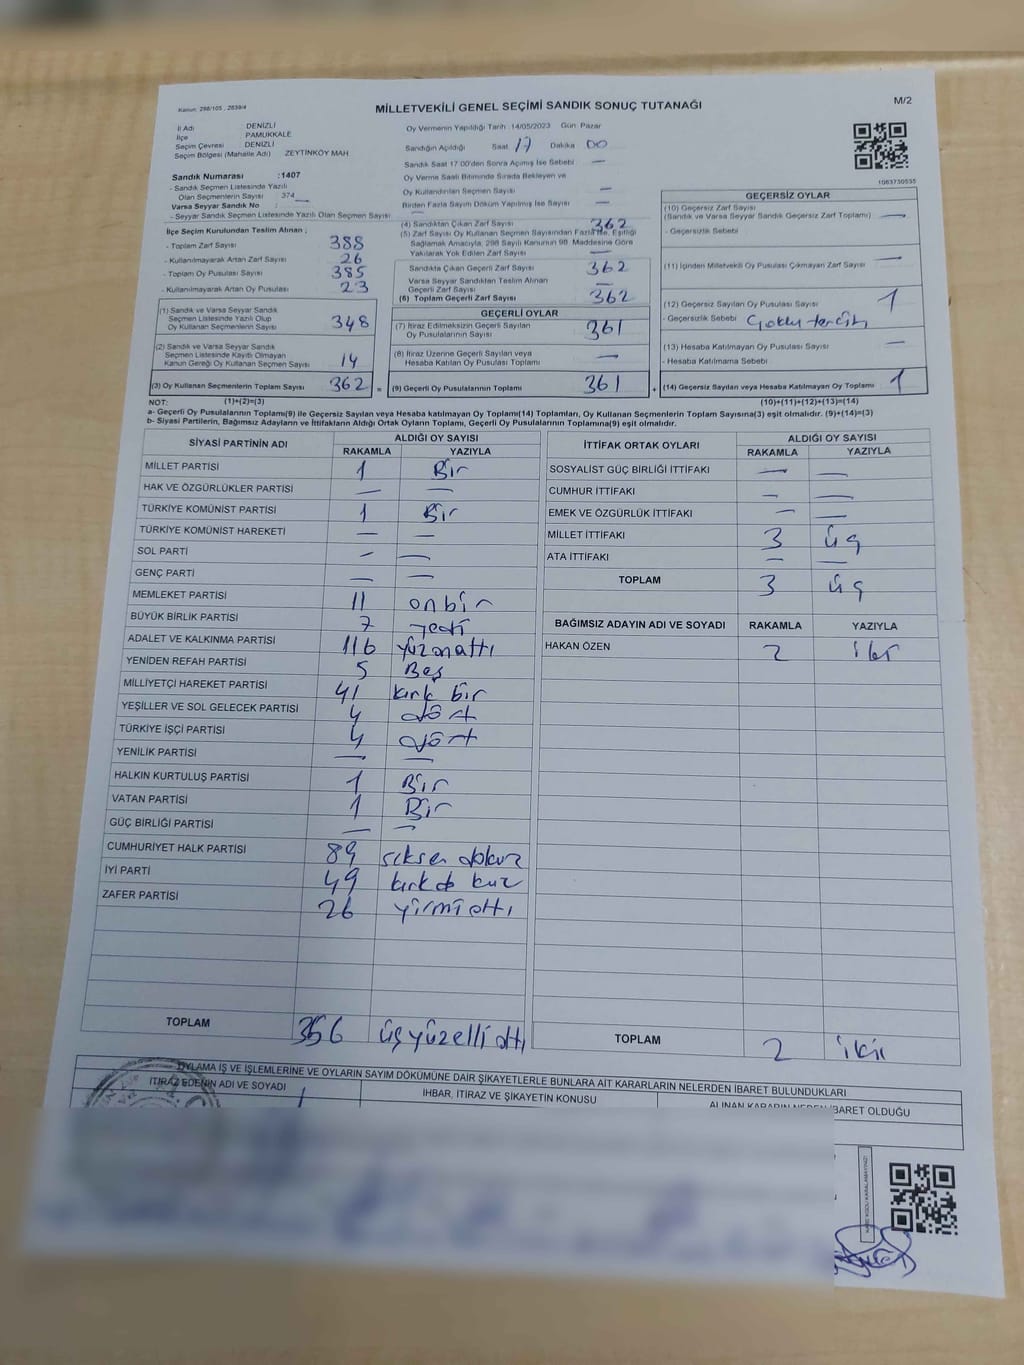 Kanun: 298/105 , 2839/4
MİLLETVEKİLİ GENEL SEÇİMİ SANDIK SONUÇ TUTANAĞI
M/2
İl Adı DENİZLİ
İlçe PAMUKKALE
Seçim Çevresi DENİZLİ
Seçim Bölgesi (Mahalle Adı) ZEYTİNKÖY MAH.
Sandık Numarası :1407
- Sandık Seçmen Listesinde Yazılı
Olan Seçmenlerin Sayısı 374
Varsa Seyyar Sandık No :
- Seyyar Sandık Seçmen Listesinde Yazılı Olan Seçmen Sayısı
İlçe Seçim Kurulundan Teslim Alınan ;
- Toplam Zarf Sayısı 388
- Kullanılmayarak Artan Zarf Sayısı 26
- Toplam Oy Pusulası Sayısı 385
- Kullanılmayarak Artan Oy Pusulası 23
(1) Sandık ve Varsa Seyyar Sandık
Seçmen Listesinde Yazılı Olup
Oy Kullanan Seçmenlerin Sayısı 348
(2) Sandık ve Varsa Seyyar Sandık
Seçmen Listesinde Kayıtlı Olmayan
Kanun Gereği Oy Kullanan Seçmen Sayısı 14
(3) Oy Kullanan Seçmenlerin Toplam Sayısı 362 =
Oy Vermenin Yapıldığı Tarih :14/05/2023 Gün: Pazar
Sandığın Açıldığı Saat 17 Dakika 00
Sandık Saat 17:00'den Sonra Açımış İse Sebebi —
Oy Verme Saati Bitiminde Sırada Bekleyen ve
Oy Kullandırılan Seçmen Sayısı —
Birden Fazla Sayım Döküm Yapılmış İse Sayısı —
(4) Sandıktan Çıkan Zarf Sayısı 362
(5) Zarf Sayısı Oy Kullanan Seçmen Sayısından Fazla İse, Eşitliği
Sağlamak Amacıyla, 298 Sayılı Kanunun 98. Maddesine Göre
Yakılarak Yok Edilen Zarf Sayısı —
Sandıkta Çıkan Geçerli Zarf Sayısı 362
Varsa Seyyar Sandıktan Teslim Alınan
Geçerli Zarf Sayısı —
(6) Toplam Geçerli Zarf Sayısı 362
GEÇERLİ OYLAR
(7) İtiraz Edilmeksizin Geçerli Sayılan
Oy Pusulalarının Sayısı 361
(8) İtiraz Üzerine Geçerli Sayılan veya
Hesaba Katılan Oy Pusulası Toplamı —
(9) Geçerli Oy Pusulalarının Toplamı 361 +
1063730535
GEÇERSİZ OYLAR
(10) Geçersiz Zarf Sayısı
(Sandık ve Varsa Seyyar Sandık Geçersiz Zarf Toplamı) —
- Geçersizlik Sebebi
(11) İçinden Milletvekili Oy Pusulası Çıkmayan Zarf Sayısı —
(12) Geçersiz Sayılan Oy Pusulası Sayısı 1
- Geçersizlik Sebebi Çoklu tercih
(13) Hesaba Katılmayan Oy Pusulası Sayısı —
- Hesaba Katılmama Sebebi
(14) Geçersiz Sayılan veya Hesaba Katılmayan Oy Toplamı 1
NOT: (1)+(2)=(3) (10)+(11)+(12)+(13)=(14)
a- Geçerli Oy Pusulalarının Toplamı(9) ile Geçersiz Sayılan veya Hesaba katılmayan Oy Toplamı(14) Toplamları, Oy Kullanan Seçmenlerin Toplam Sayısına(3) eşit olmalıdır. (9)+(14)=(3)
b- Siyasi Partilerin, Bağımsız Adayların ve İttifakların Aldığı Ortak Oyların Toplamı, Geçerli Oy Pusulalarının Toplamına(9) eşit olmalıdır.
SİYASİ PARTİNİN ADI ALDIĞI OY SAYISI
RAKAMLA YAZIYLA
MİLLET PARTİSİ 1 Bir
HAK VE ÖZGÜRLÜKLER PARTİSİ — —
TÜRKİYE KOMÜNİST PARTİSİ 1 Bir
TÜRKİYE KOMÜNİST HAREKETİ — —
SOL PARTİ — —
GENÇ PARTİ — —
MEMLEKET PARTİSİ 11 onbir
BÜYÜK BİRLİK PARTİSİ 7 yedi
ADALET VE KALKINMA PARTİSİ 116 yüzonaltı
YENİDEN REFAH PARTİSİ 5 Beş
MİLLİYETÇİ HAREKET PARTİSİ 41 kırk bir
YEŞİLLER VE SOL GELECEK PARTİSİ 4 dört
TÜRKİYE İŞÇİ PARTİSİ 4 dört
YENİLİK PARTİSİ — —
HALKIN KURTULUŞ PARTİSİ 1 Bir
VATAN PARTİSİ 1 Bir
GÜÇ BİRLİĞİ PARTİSİ — —
CUMHURİYET HALK PARTİSİ 89 seksen dokuz
İYİ PARTİ 49 kırk do kuz
ZAFER PARTİSİ 26 yirmi altı
TOPLAM 356 üçyüzelli altı
İTTİFAK ORTAK OYLARI ALDIĞI OY SAYISI
RAKAMLA YAZIYLA
SOSYALİST GÜÇ BİRLİĞİ İTTİFAKI — —
CUMHUR İTTİFAKI — —
EMEK VE ÖZGÜRLÜK İTTİFAKI — —
MİLLET İTTİFAKI 3 üç
ATA İTTİFAKI — —
TOPLAM 3 üç
BAĞIMSIZ ADAYIN ADI VE SOYADI RAKAMLA YAZIYLA
HAKAN ÖZEN 2 iki
TOPLAM 2 iki
OYLAMA İŞ VE İŞLEMLERİNE VE OYLARIN SAYIM DÖKÜMÜNE DAİR ŞİKAYETLERLE BUNLARA AİT KARARLARIN NELERDEN İBARET BULUNDUKLARI
İTİRAZ EDENİN ADI VE SOYADI İHBAR, İTİRAZ VE ŞİKAYETİN KONUSU ALINAN KARARIN NEDEN İBARET OLDUĞU